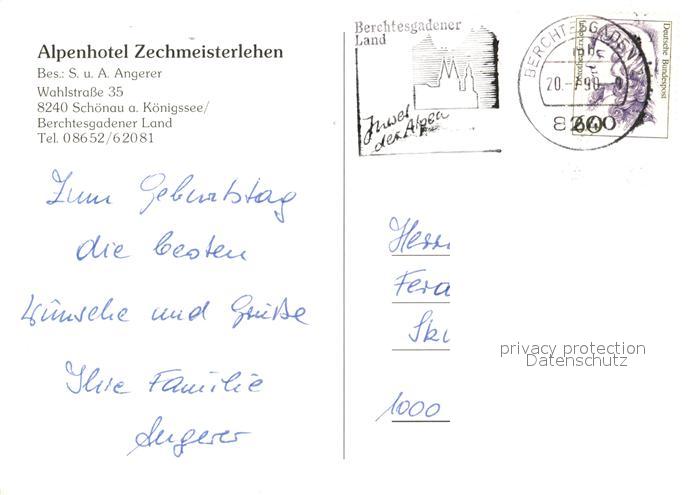 Alpenhotel Zechmeisterlehen
Bes.: S. u. A. Angerer
Wahlstraße 35
8240 Schönau a. Königssee/
Berchtesgadener Land
Tel. 08652/62081
Zum Geburtstag
die besten
Wünsche und Grüße
Ihre Familie
Angerer
Berchtesgadener
Land
Juwel
der Alpen
BERCHTESGADEN
20.-7.90
8240
Deutsche Bundespost
Herrn
Fera
Ski
1000
privacy protection
Datenschutz